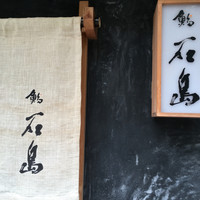 鮨
石島
鮨
石島